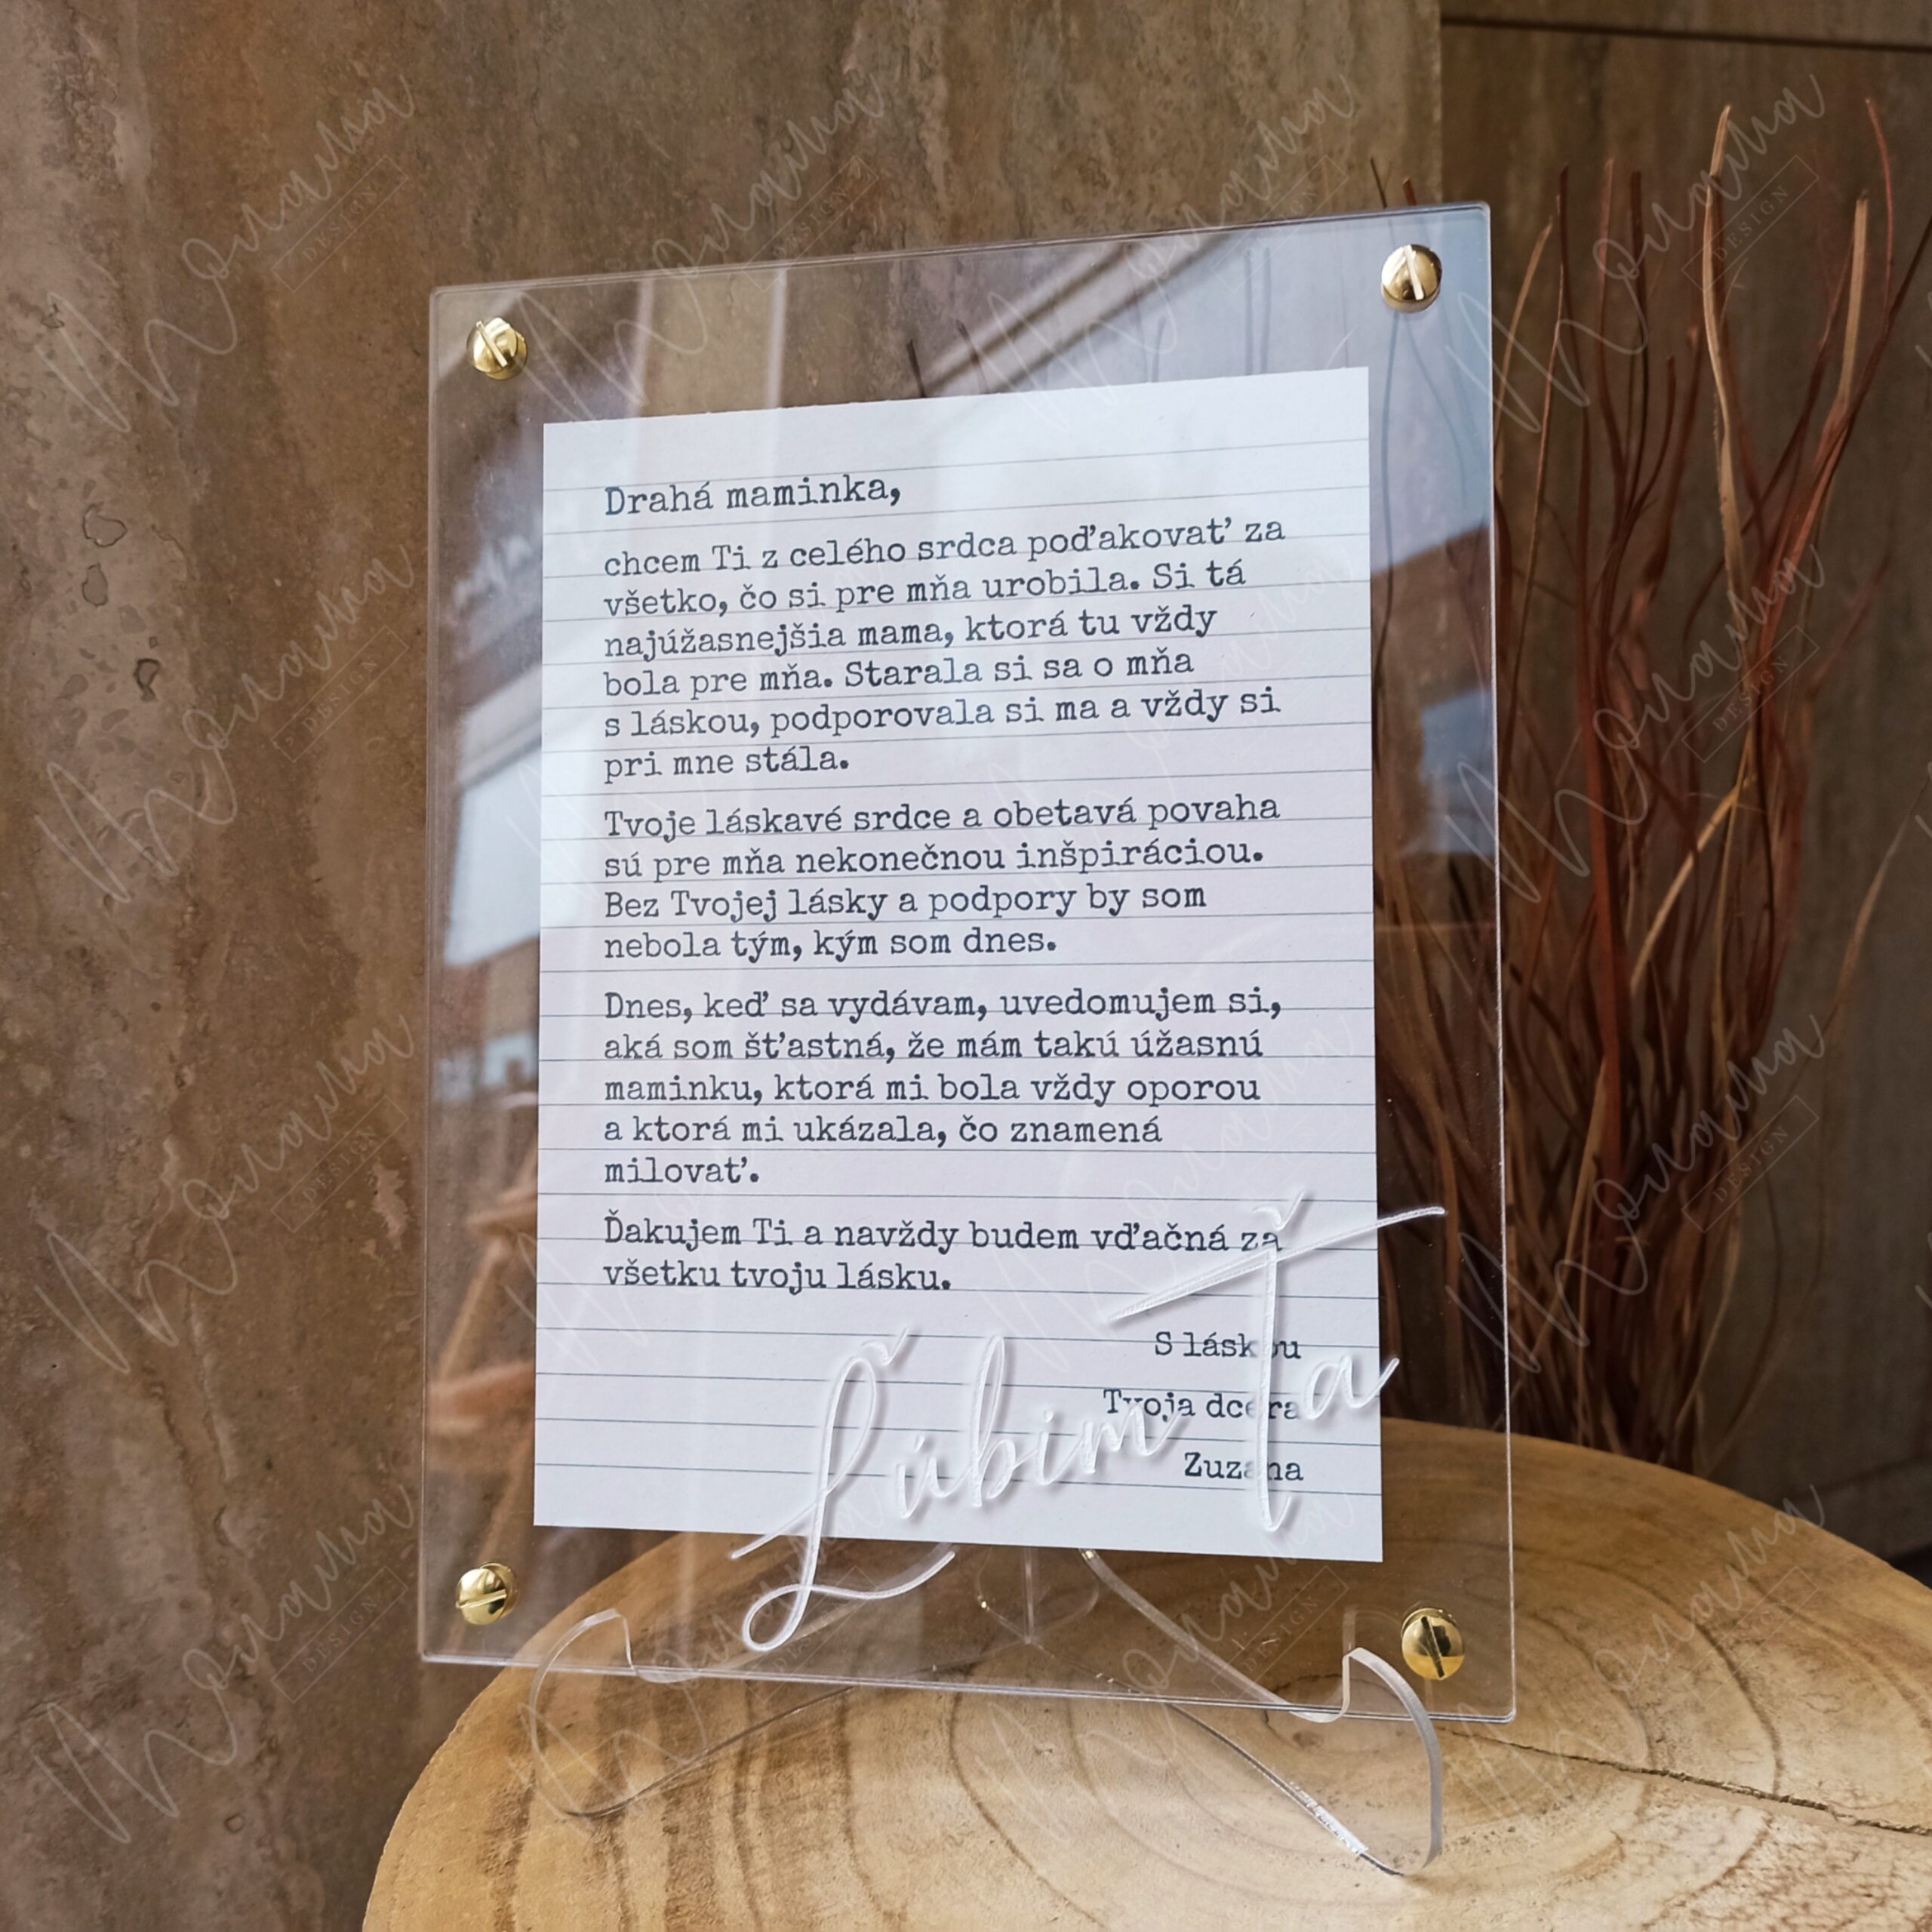 Drahá maminka,
chcem Ti z celého srdca poďakovať za
všetko, čo si pre mňa urobila. Si tá
najúžasnejšia mama, ktorá tu vždy
bola pre mňa. Starala si sa o mňa
s láskou, podporovala si ma a vždy si
pri mne stála.
Tvoje láskavé srdce a obetavá povaha
sú pre mňa nekonečnou inšpiráciou.
Bez Tvojej lásky a podpory by som
nebola tým, kým som dnes.
Dnes, keď sa vydávam, uvedomujem si,
aká som šťastná, že mám takú úžasnú
maminku, ktorá mi bola vždy oporou
a ktorá mi ukázala, čo znamená
milovať.
Ďakujem Ti a navždy budem vďačná za
všetku tvoju lásku.
S láskou
Tvoja dcéra
Zuzana
Ľúbim Ťa
DESIGN